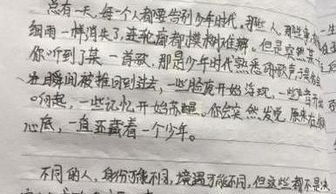 总有一天,每一个人都要告别少年时代,那些人,那些事
细雨一样消失了,连轮廓都模糊难辨,但是突然某一
你听到了某一首歌,那是少年时代熟悉的歌声,
瞬间被推回到过去,一些脸庞开始浮现,一些
响起,一些记忆开始苏醒。你会突然发觉,原来在
心底,一直蛰藏着一个少年。
不同的人,身份可能不同,境遇可能不同,但这些都不是